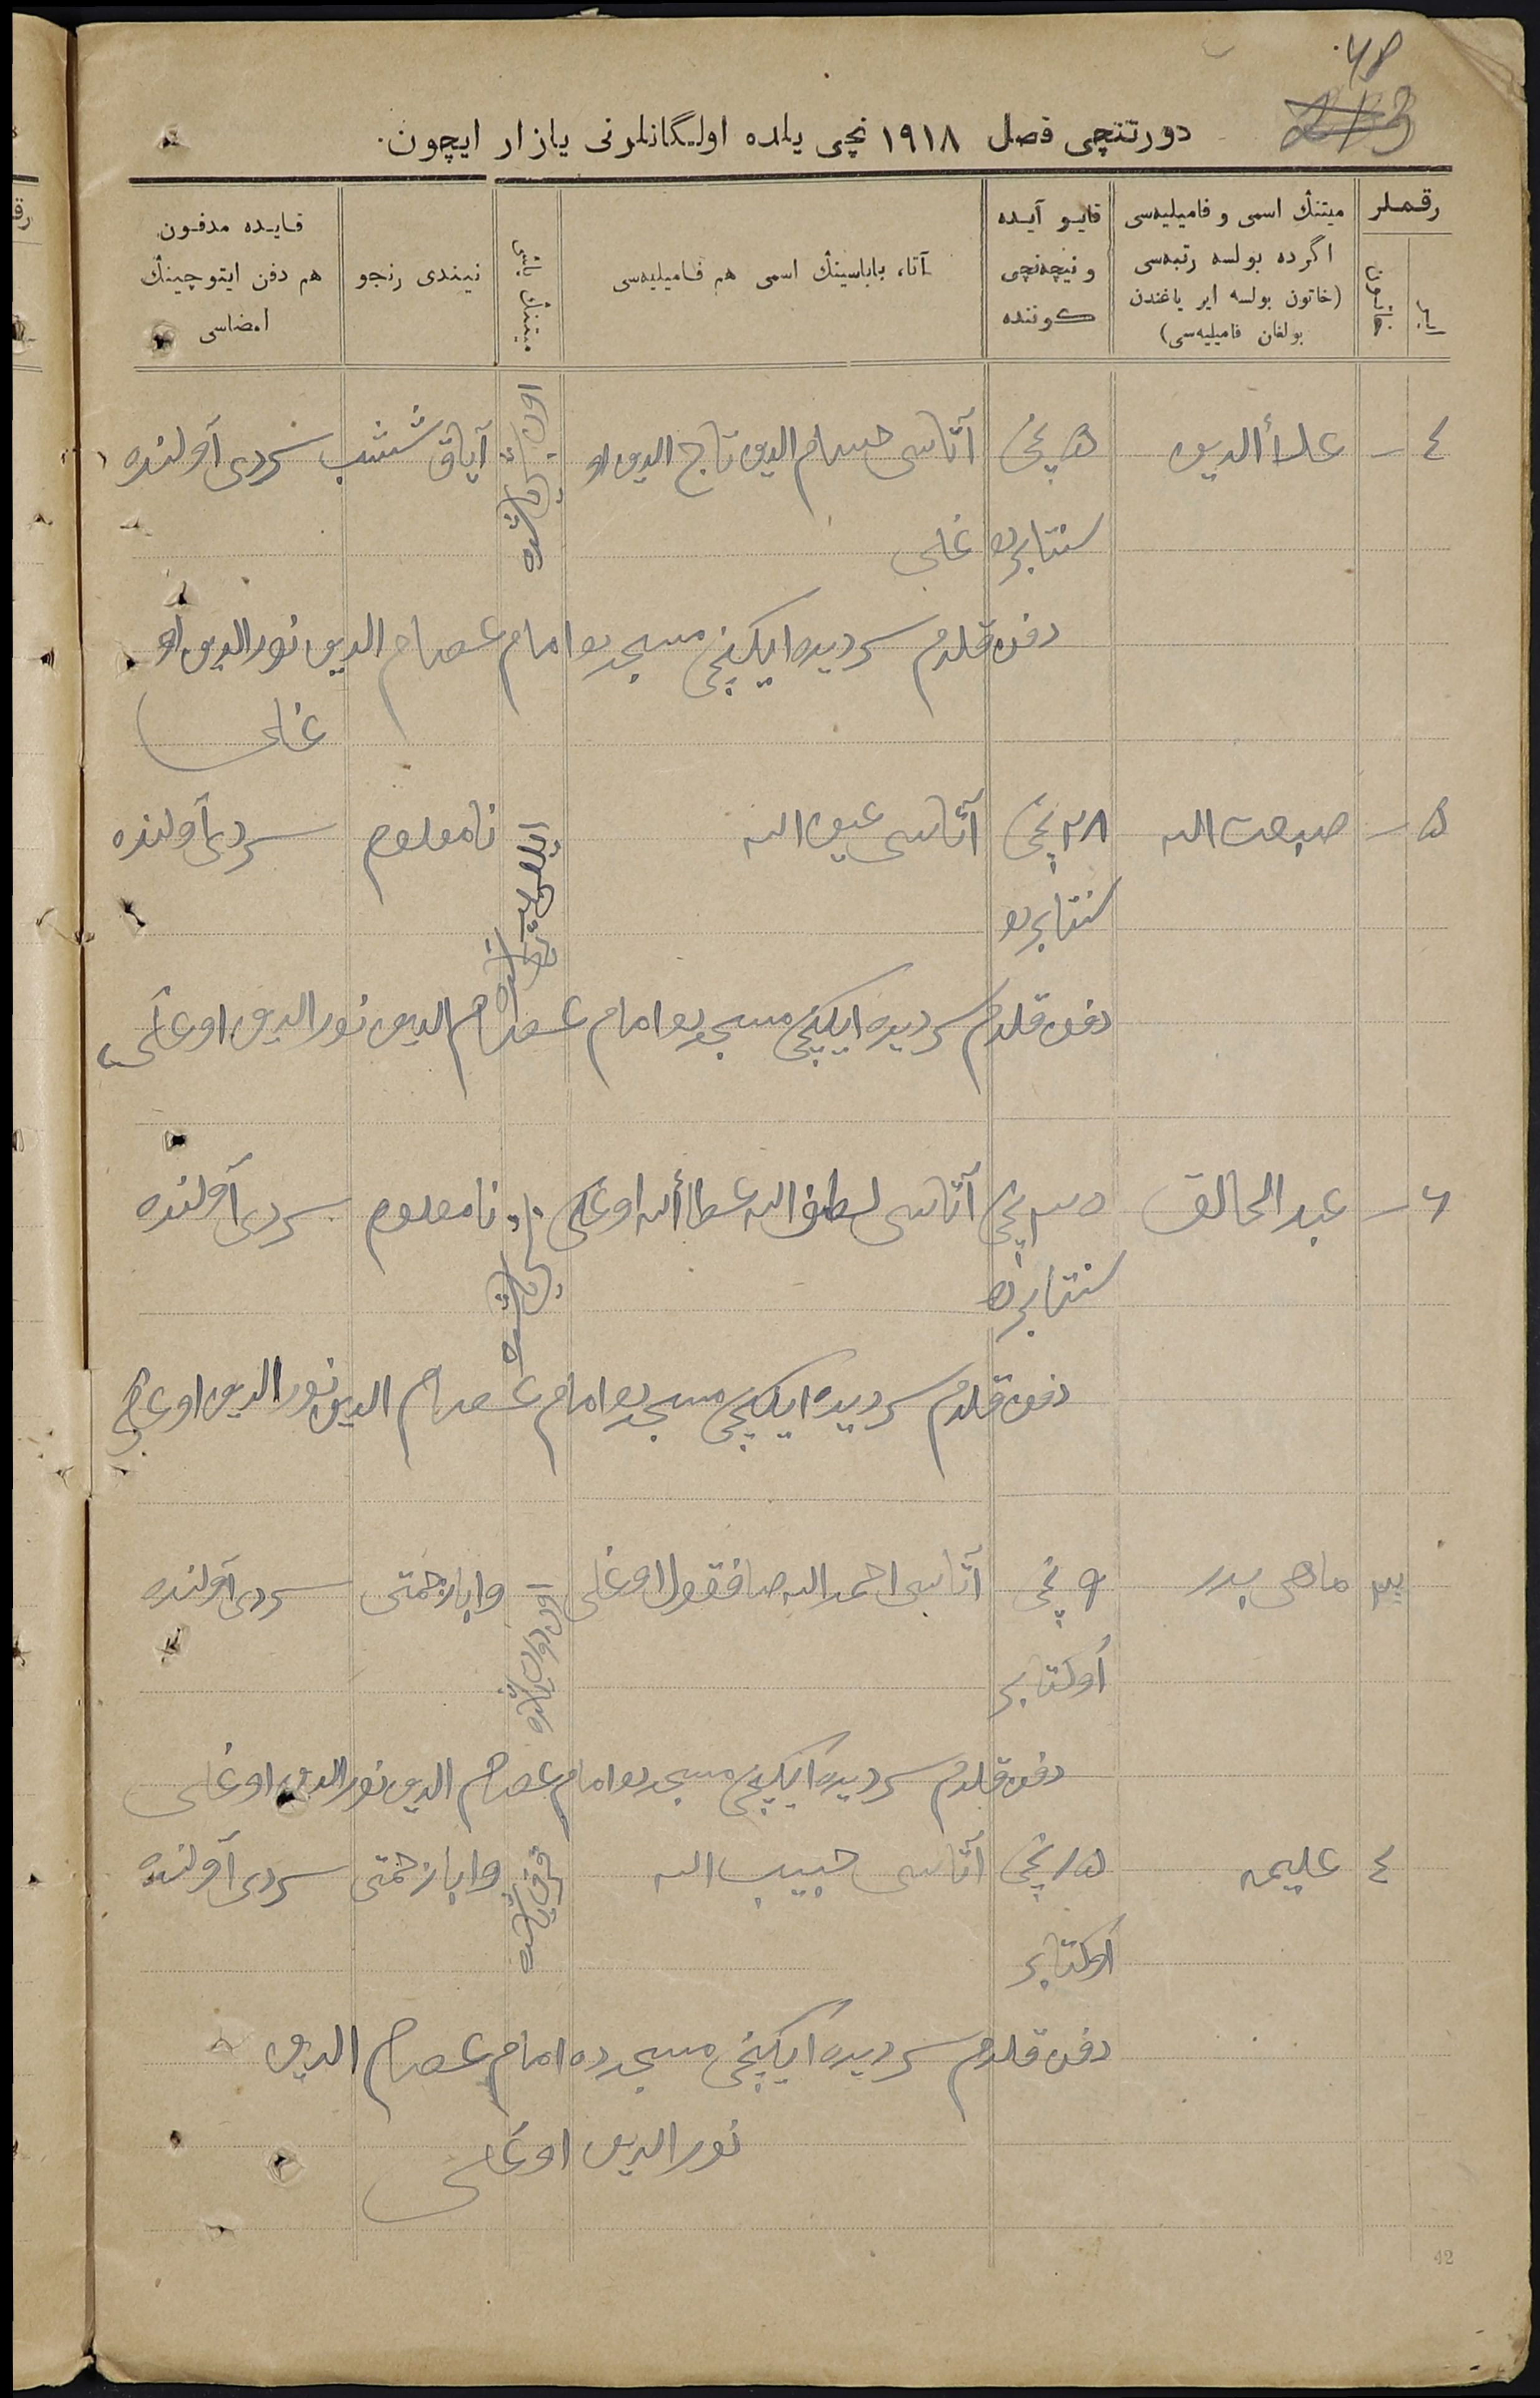 دورتنچی فصل ۱۹۱۸ نچی یلده اولگانلرنی یازار ایچون.
رقملر
میتنڭ اسمی و فامیلیه‌سی اگرده بولسه رتبه‌سی (خاتون بولسه ایر یاغندن بولغان فامیلیه‌سی)
قایو آیده و نیچه‌نچی کوننده
آتا، باباسینڭ اسمی هم فامیلیه‌سی
میتنڭ یاشی
نیندی رنجو
قایده مدفون هم دفن ایتوچینڭ امضاسی
ایر
خاتون
٤ – علاألدین ۵ نچی آتاسی حسام الدین تاج الدین او آیاق شئشب سردی آولنده
سنتابرده غلی
دفن قلدم سردیده ایکینچی مسجدده امام عصام الدین نورالدین او
غلی
۵ – صبعت الله ۲۸ نچی آتاسی الله نامعلوم سردی آولنده
سنتابرده
دفن قلدم سردیده ایکینچی مسجدده امام عصام الدین نورالدین اوغلی
٦ – عبد الخالق ۳۰ نچی آتاسی لطف الله عطاألله اوغلی نامعلوم سردی آولنده
سنتابرده
دفن قلدم سردیده ایکینچی مسجدده امام عصام الدین نورالدین اوغلی
۳ ماهی بدر ۹ نچی آتاسی احمدالله صافقول اوغلی اون یاشنده وابا زحمتی سردی آولنده
أوکتابر
دفن قلدم سردیده ایکینچی مسجدده امام عصام الدین نورالدین اوغلی
٤ علیمه ۱۵ نچی آتاسی حبیب الله قرق یاشنده وابا زحمتی سردی آولنده
أوکتابر
دفن قلدم سردیده ایکینچی مسجدده امام عصام الدین
نورالدین اوغلی
42